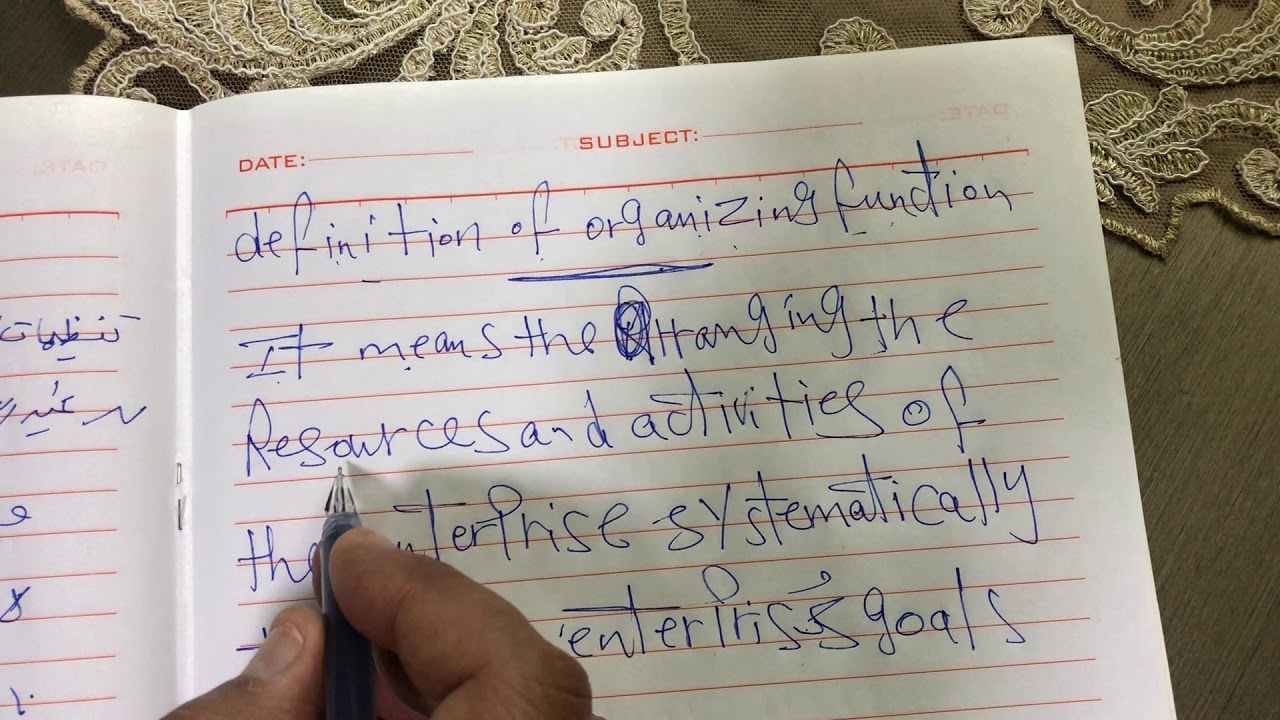 DATE: SUBJECT:
definition of organizing function
It means the arranging the
Resources and activities of
the enterprise systematically
enterprise's goals
تنظيمات